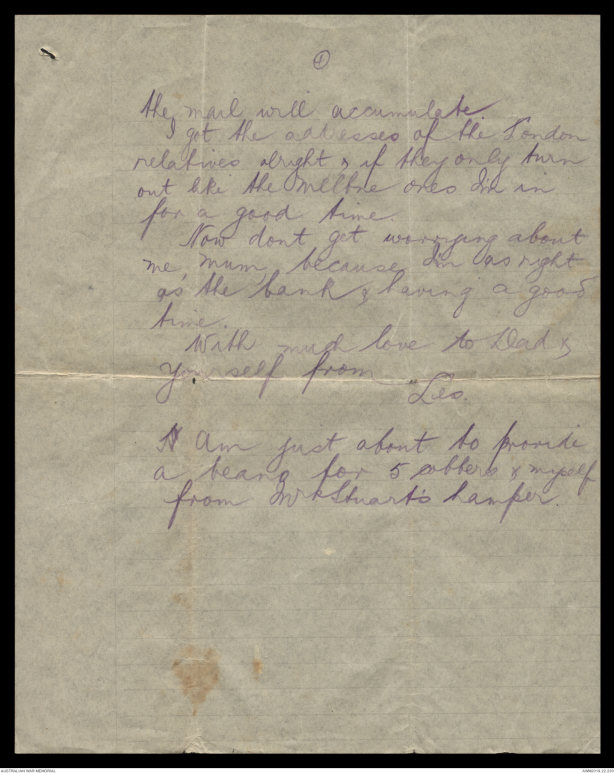 ①
the mail will accumulate
I got the addresses of the London
relatives alright & if they only turn
out like the Melbne ones Im in
for a good time.
Now dont get worrying about
me, Mum, because Im as right
as the bank & having a good
time.
With much love to Dad &
Yourself from
Leo.
Am just about to provide
a beano for 5 others & myself
from Mrs Stuart's hamper
AUSTRALIAN WAR MEMORIAL